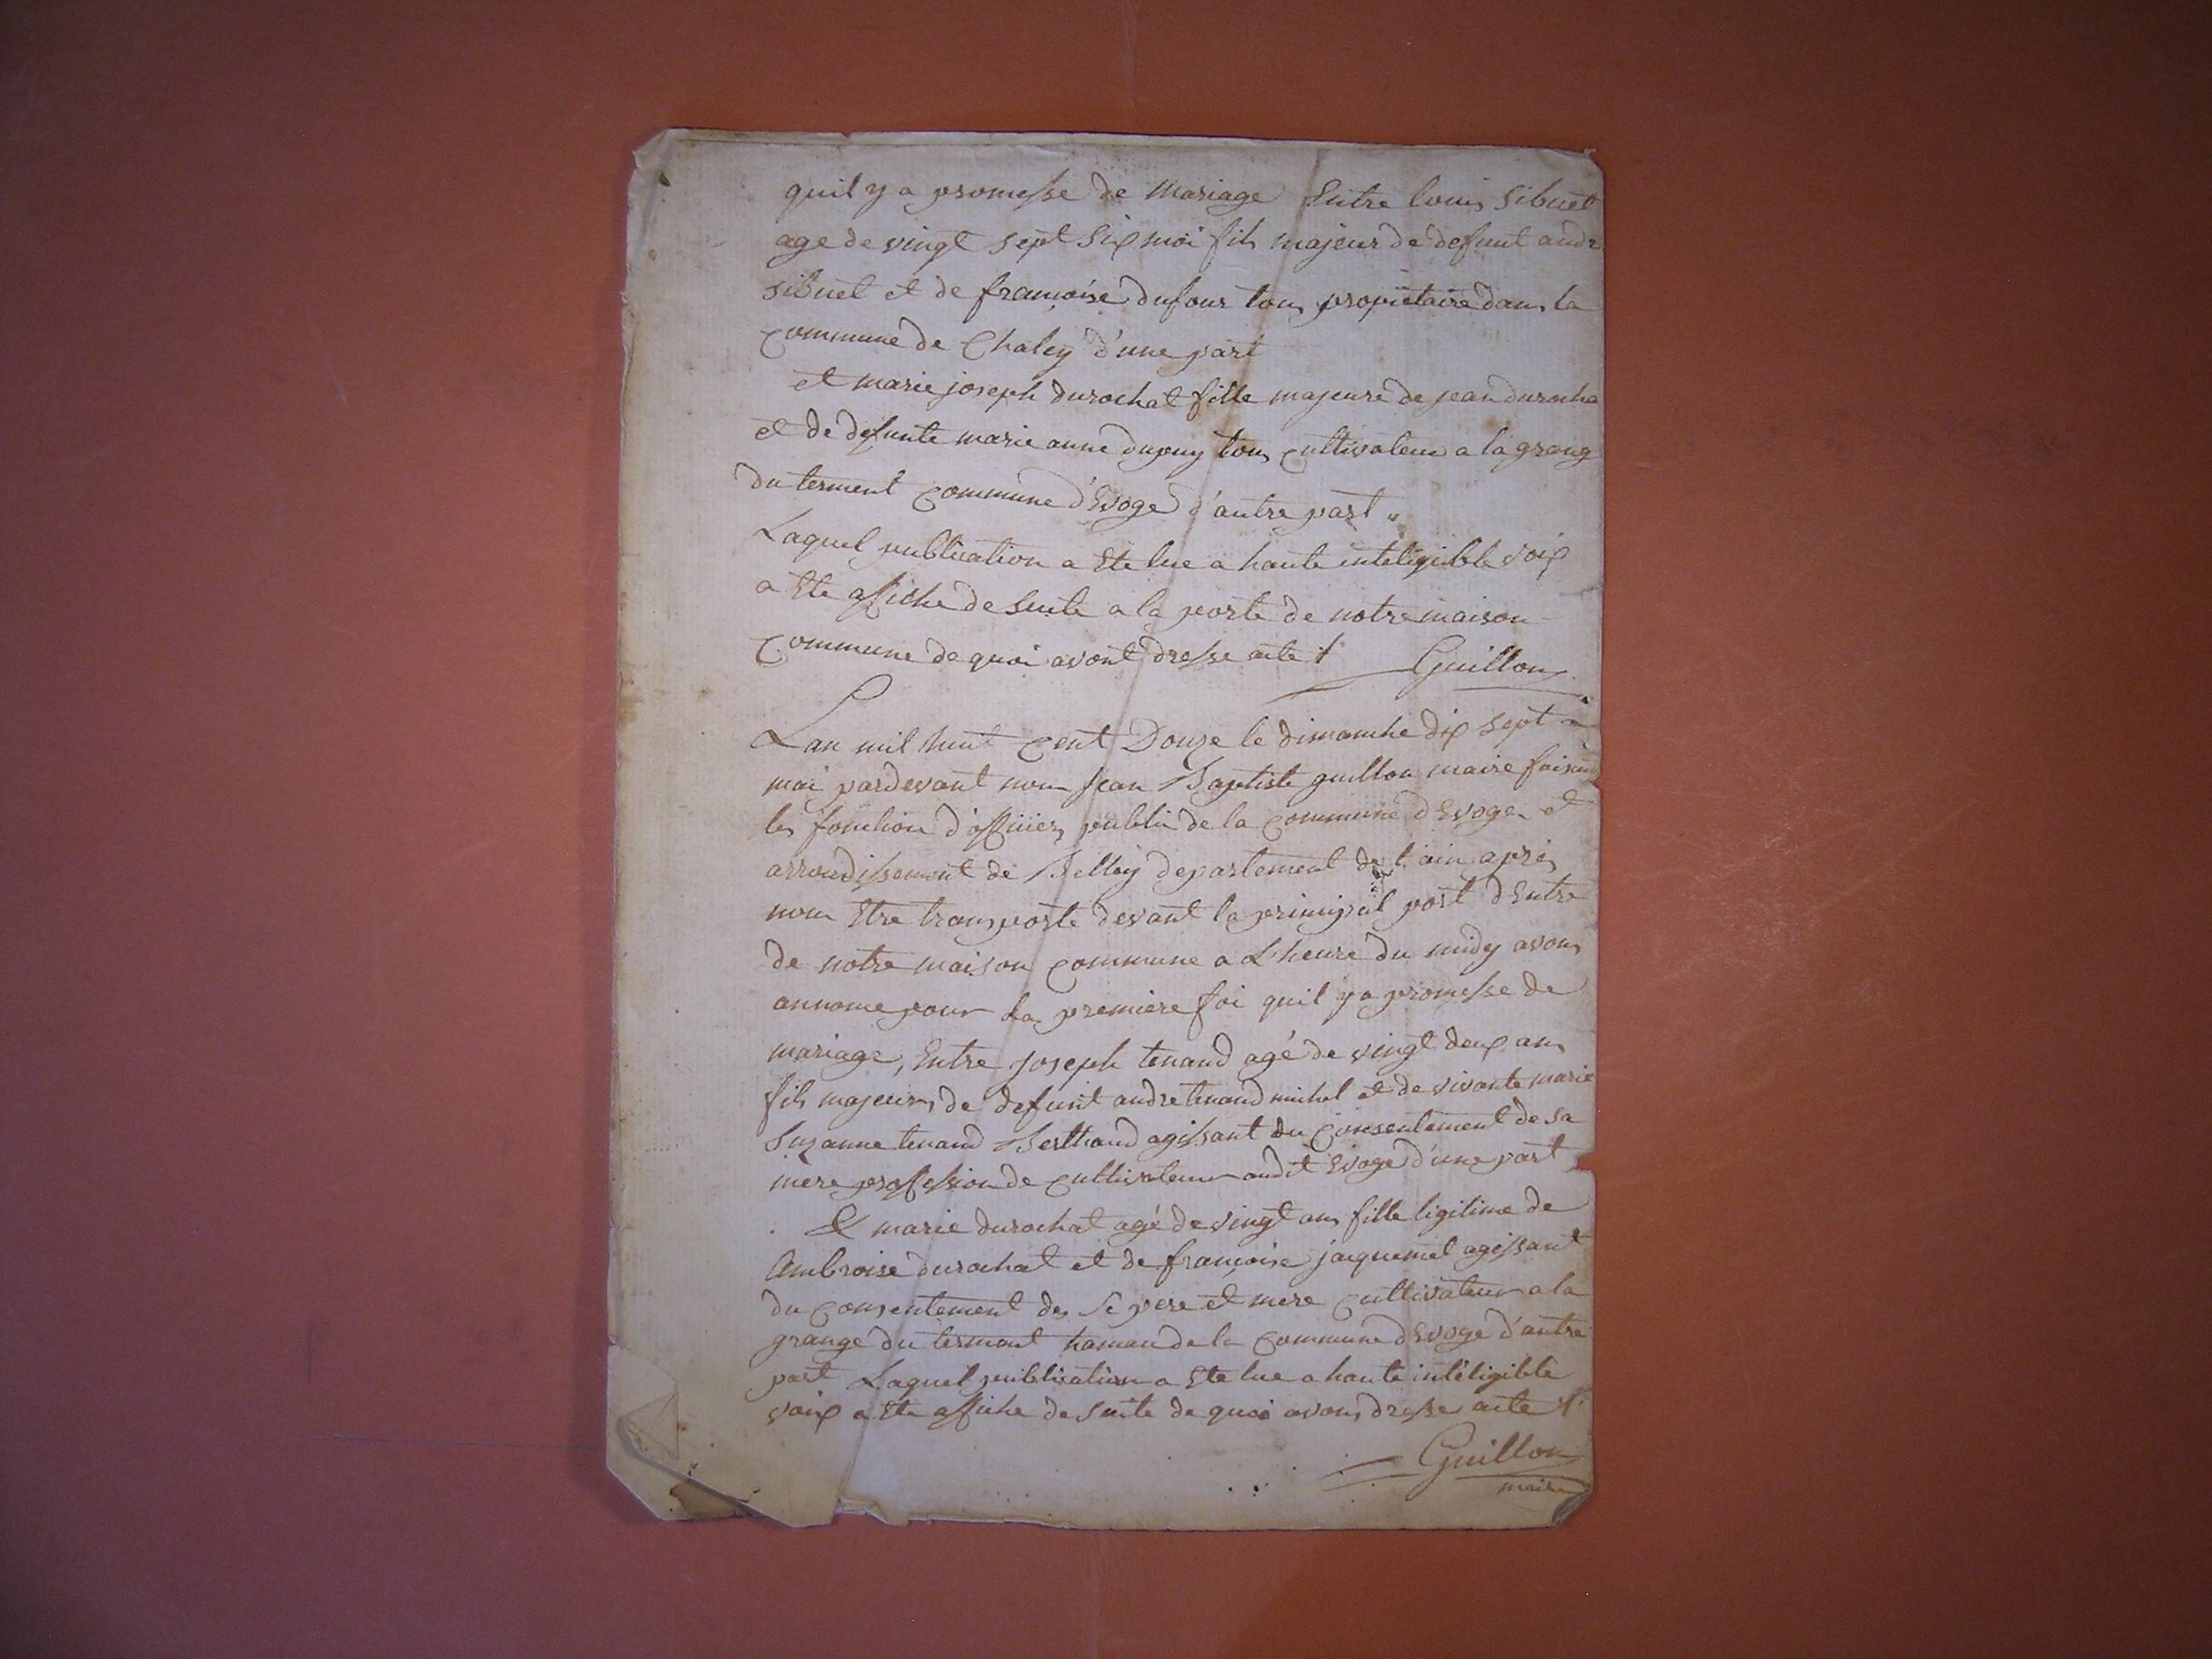 quil y a promesse de mariage Entre louis sibuet
age de vingt sept six moi fils majeur de defunt andr
sibuet et de francoise dufour tous propietaire dans la
commune de Chaley d'une part
et marie joseph durochat fille majeure de jean durocha
et de defunte marie anne dupuy tous cultivateur a la grang
du terment commune d'Evoge d'autre part
Laquel publication a Ete lue a haute inteligible voix
a Ete affiche de suite a la porte de notre maison
commune de quoi avont dresse acte Guillon
Lan mil huit cent Douze le dimanche dix sept
mai pardevant nous jean Baptiste guillon maire faisant
les fonction d'officier public de la commune d'Evoge et
arrondissement de Belley departement de l'ain apres
nous Etre transporte devant la principal port d'Entre
de notre maison commune a L'heure du midy avons
annonce pour La premiere foi quil y a promesse de
mariage, Entre joseph tenand agé de vingt deux ans
fils majeur de defunt andre tenand michel et de vivante marie
Suzanne tenand Berthand agissant du consentement de sa
mere proffession de cultivateur audit Evoge d'une part
Et marie durochat agé de vingt ans fille ligitime de
Ambroise durochat et de françoise jacquemet agissant
du consentement des Se pere et mere cultivateur a la
grange du terment hamau de la commune d'Evoge d'autre
part Laquel publication a Ete lue a haute inteligible
voix a Ete affiche de suite de quoi avons dresse acte
Guillon
maire